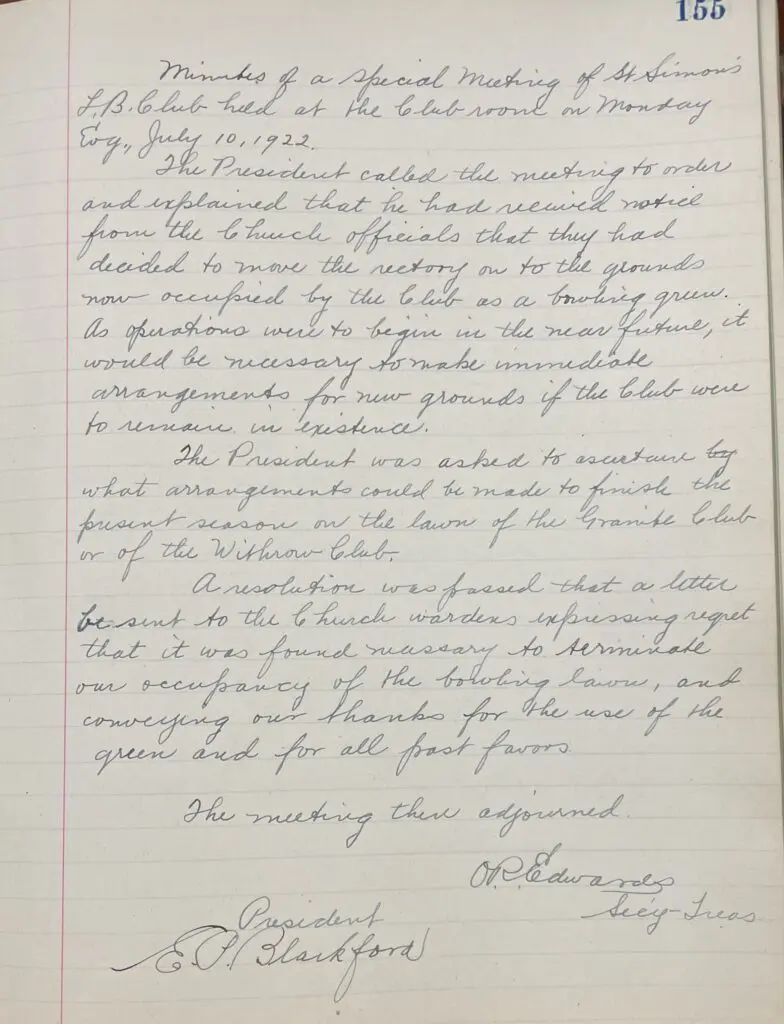 155
Minutes of a special Meeting of St Simon's
L.B. Club held at the Club room on Monday
Evg., July 10, 1922.
The President called the meeting to order
and explained that he had received notice
from the Church officials that they had
decided to move the rectory on to the grounds
now occupied by the Club as a bowling green.
As operations were to begin in the near future, it
would be necessary to make immediate
arrangements for new grounds if the Club were
to remain in existence.
The President was asked to ascertain by
what arrangements could be made to finish the
present season on the lawn of the Granite Club
or of the Withrow Club.
A resolution was passed that a letter
be sent to the Church wardens expressing regret
that it was found necessary to terminate
our occupancy of the bowling lawn, and
conveying our thanks for the use of the
green and for all past favors
The meeting then adjourned.
O.R. Edwards
Secy-Treas
President
E. P. Blackford